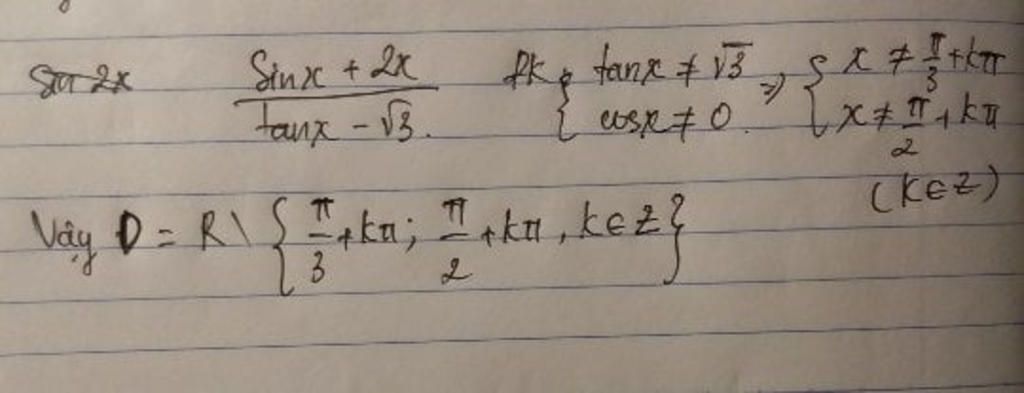 sin 2x (sinx + 2x)/(tanx - √3). ĐK { tanx ≠ √3 ; cosx ≠ 0. ⇒ { x ≠ π/3 + kπ ; x ≠ π/2 + kπ
(k∈Z)
Vậy D = R \ { π/3 + kπ; π/2 + kπ, k∈Z }